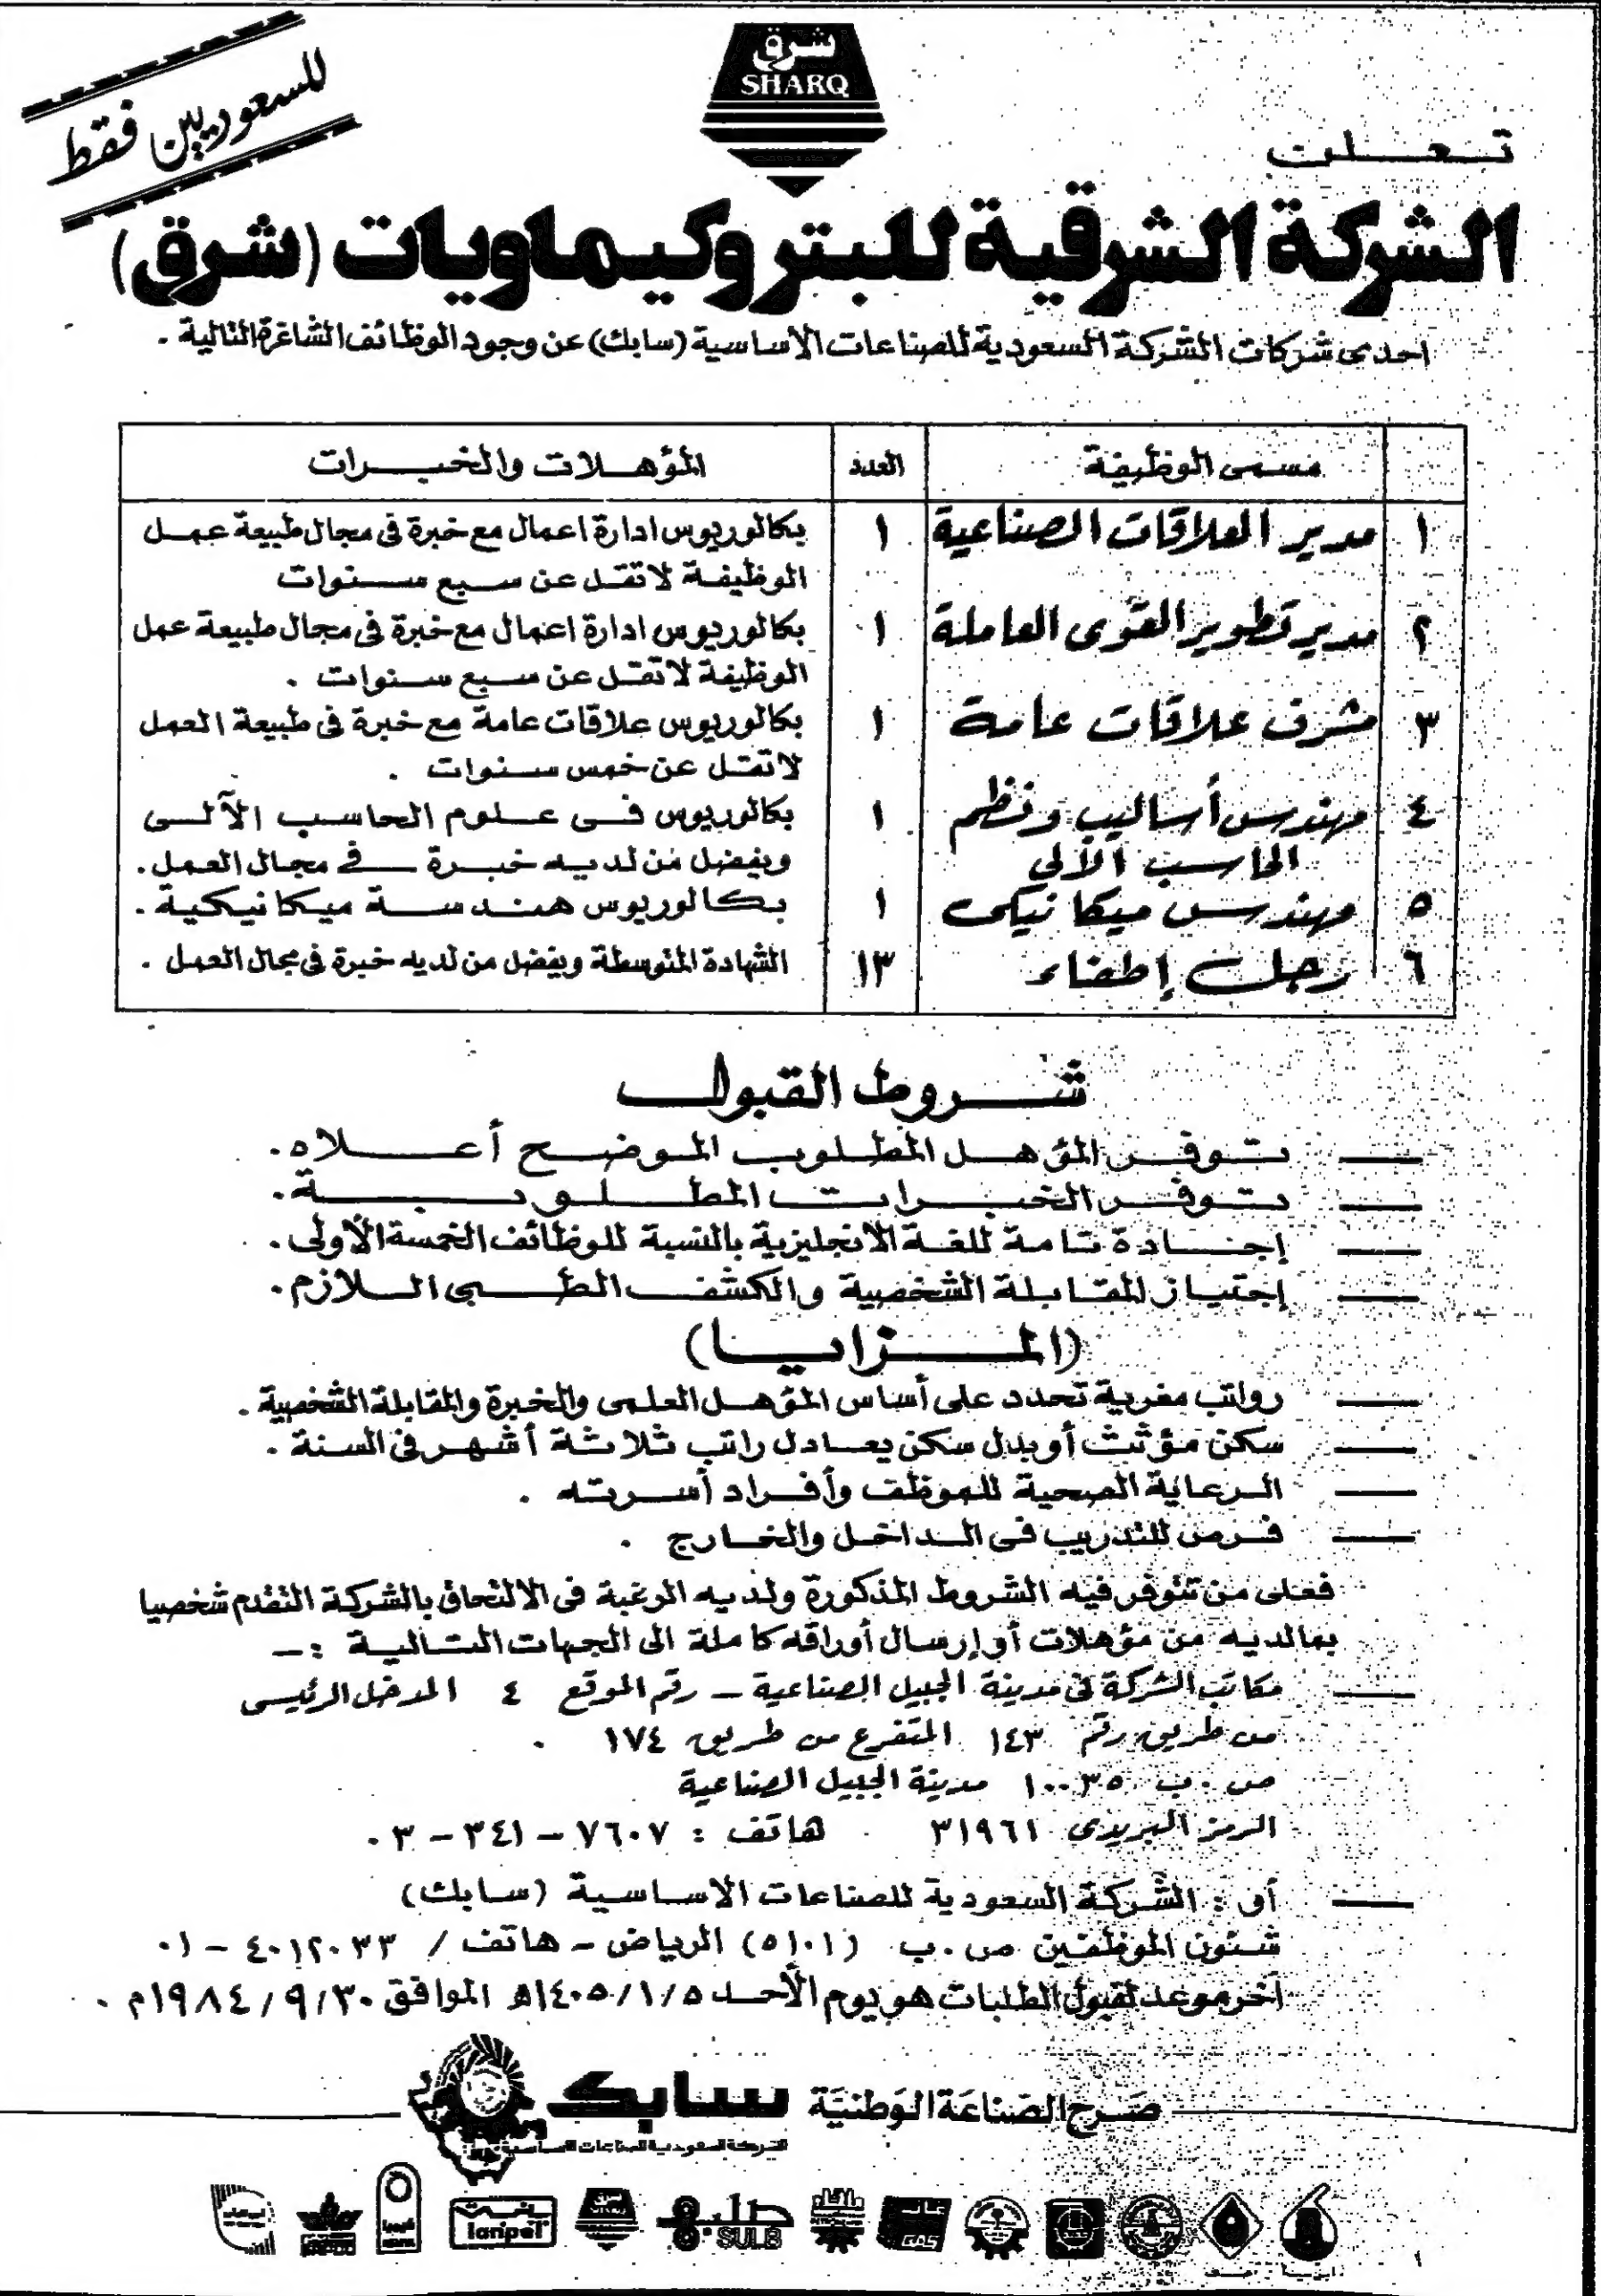 للسعوديين فقط
شرق
SHARQ
تعلن
الشركة الشرقية للبتروكيماويات (شرق)
احدى شركات الشركة السعودية للصناعات الاساسية (سابك) عن وجود الوظائف الشاغرة التالية .
مسمى الوظيفة العدد المؤهلات والخبرات
١ مدير العلاقات الصناعية ١ بكالوريوس ادارة اعمال مع خبرة في مجال طبيعة عمل
الوظيفة لا تقل عن سبع سنوات
٢ مدير تطوير القوى العاملة ١ بكالوريوس ادارة اعمال مع خبرة في مجال طبيعة عمل
الوظيفة لا تقل عن سبع سنوات .
٣ مشرف علاقات عامة ١ بكالوريوس علاقات عامة مع خبرة في طبيعة العمل
لا تقل عن خمس سنوات .
٤ مهندس أساليب ونظم ١ بكالوريوس فى علوم الحاسب الآلى
الحاسب الآلى ويفضل من لديه خبرة في مجال العمل .
٥ مهندس ميكانيكى ١ بكالوريوس هندسة ميكانيكية .
٦ رجل إطفاء ١٣ الشهادة المتوسطة ويفضل من لديه خبرة في مجال العمل .
شروط القبول
— توفر المؤهل المطلوب الموضح أعلاه .
— توفر الخبرات المطلوبة .
— إجادة تامة للغة الانجليزية بالنسبة للوظائف الخمسة الأولى .
— إجتياز المقابلة الشخصية والكشف الطبى اللازم .
(المزايا)
— رواتب مغرية تحدد على أساس المؤهل العلمى والخبرة والمقابلة الشخصية .
— سكن مؤثث أو بدل سكن يعادل راتب ثلاثة أشهر فى السنة .
— الرعاية الصحية للموظف وأفراد أسرته .
— فرص للتدريب فى الداخل والخارج .
فعلى من تتوفر فيه الشروط المذكورة ولديه الرغبة فى الالتحاق بالشركة التقدم شخصيا
بمالديه من مؤهلات أو إرسال أوراقه كاملة الى الجهات التالية :ـ
— مكاتب الشركة في مدينة الجبيل الصناعية - رقم الموقع ٤ المدخل الرئيسى
من طريق رقم ١٤٣ المتفرع من طريق ١٧٤ .
ص . ب ١٠٠٣٥ مدينة الجبيل الصناعية
الرمز البريدى ٣١٩٦١ هاتف : ٧٦٠٧ - ٣٤١ - ٠٣
— أو : الشركة السعودية للصناعات الاساسية (سابك)
شئون الموظفين ص . ب (٥١٠١) الرياض - هاتف / ٤٠١٢٠٣٣ - ٠١
آخر موعد لقبول الطلبات هو يوم الأحد ١٤٠٥/١/٥هـ الموافق ١٩٨٤/٩/٣٠م .
صَرح الصّناعَة الوَطنيَّة سابك
الشركة السعودية للصناعات الاساسية
صلب
SULB
ianpet
GAS